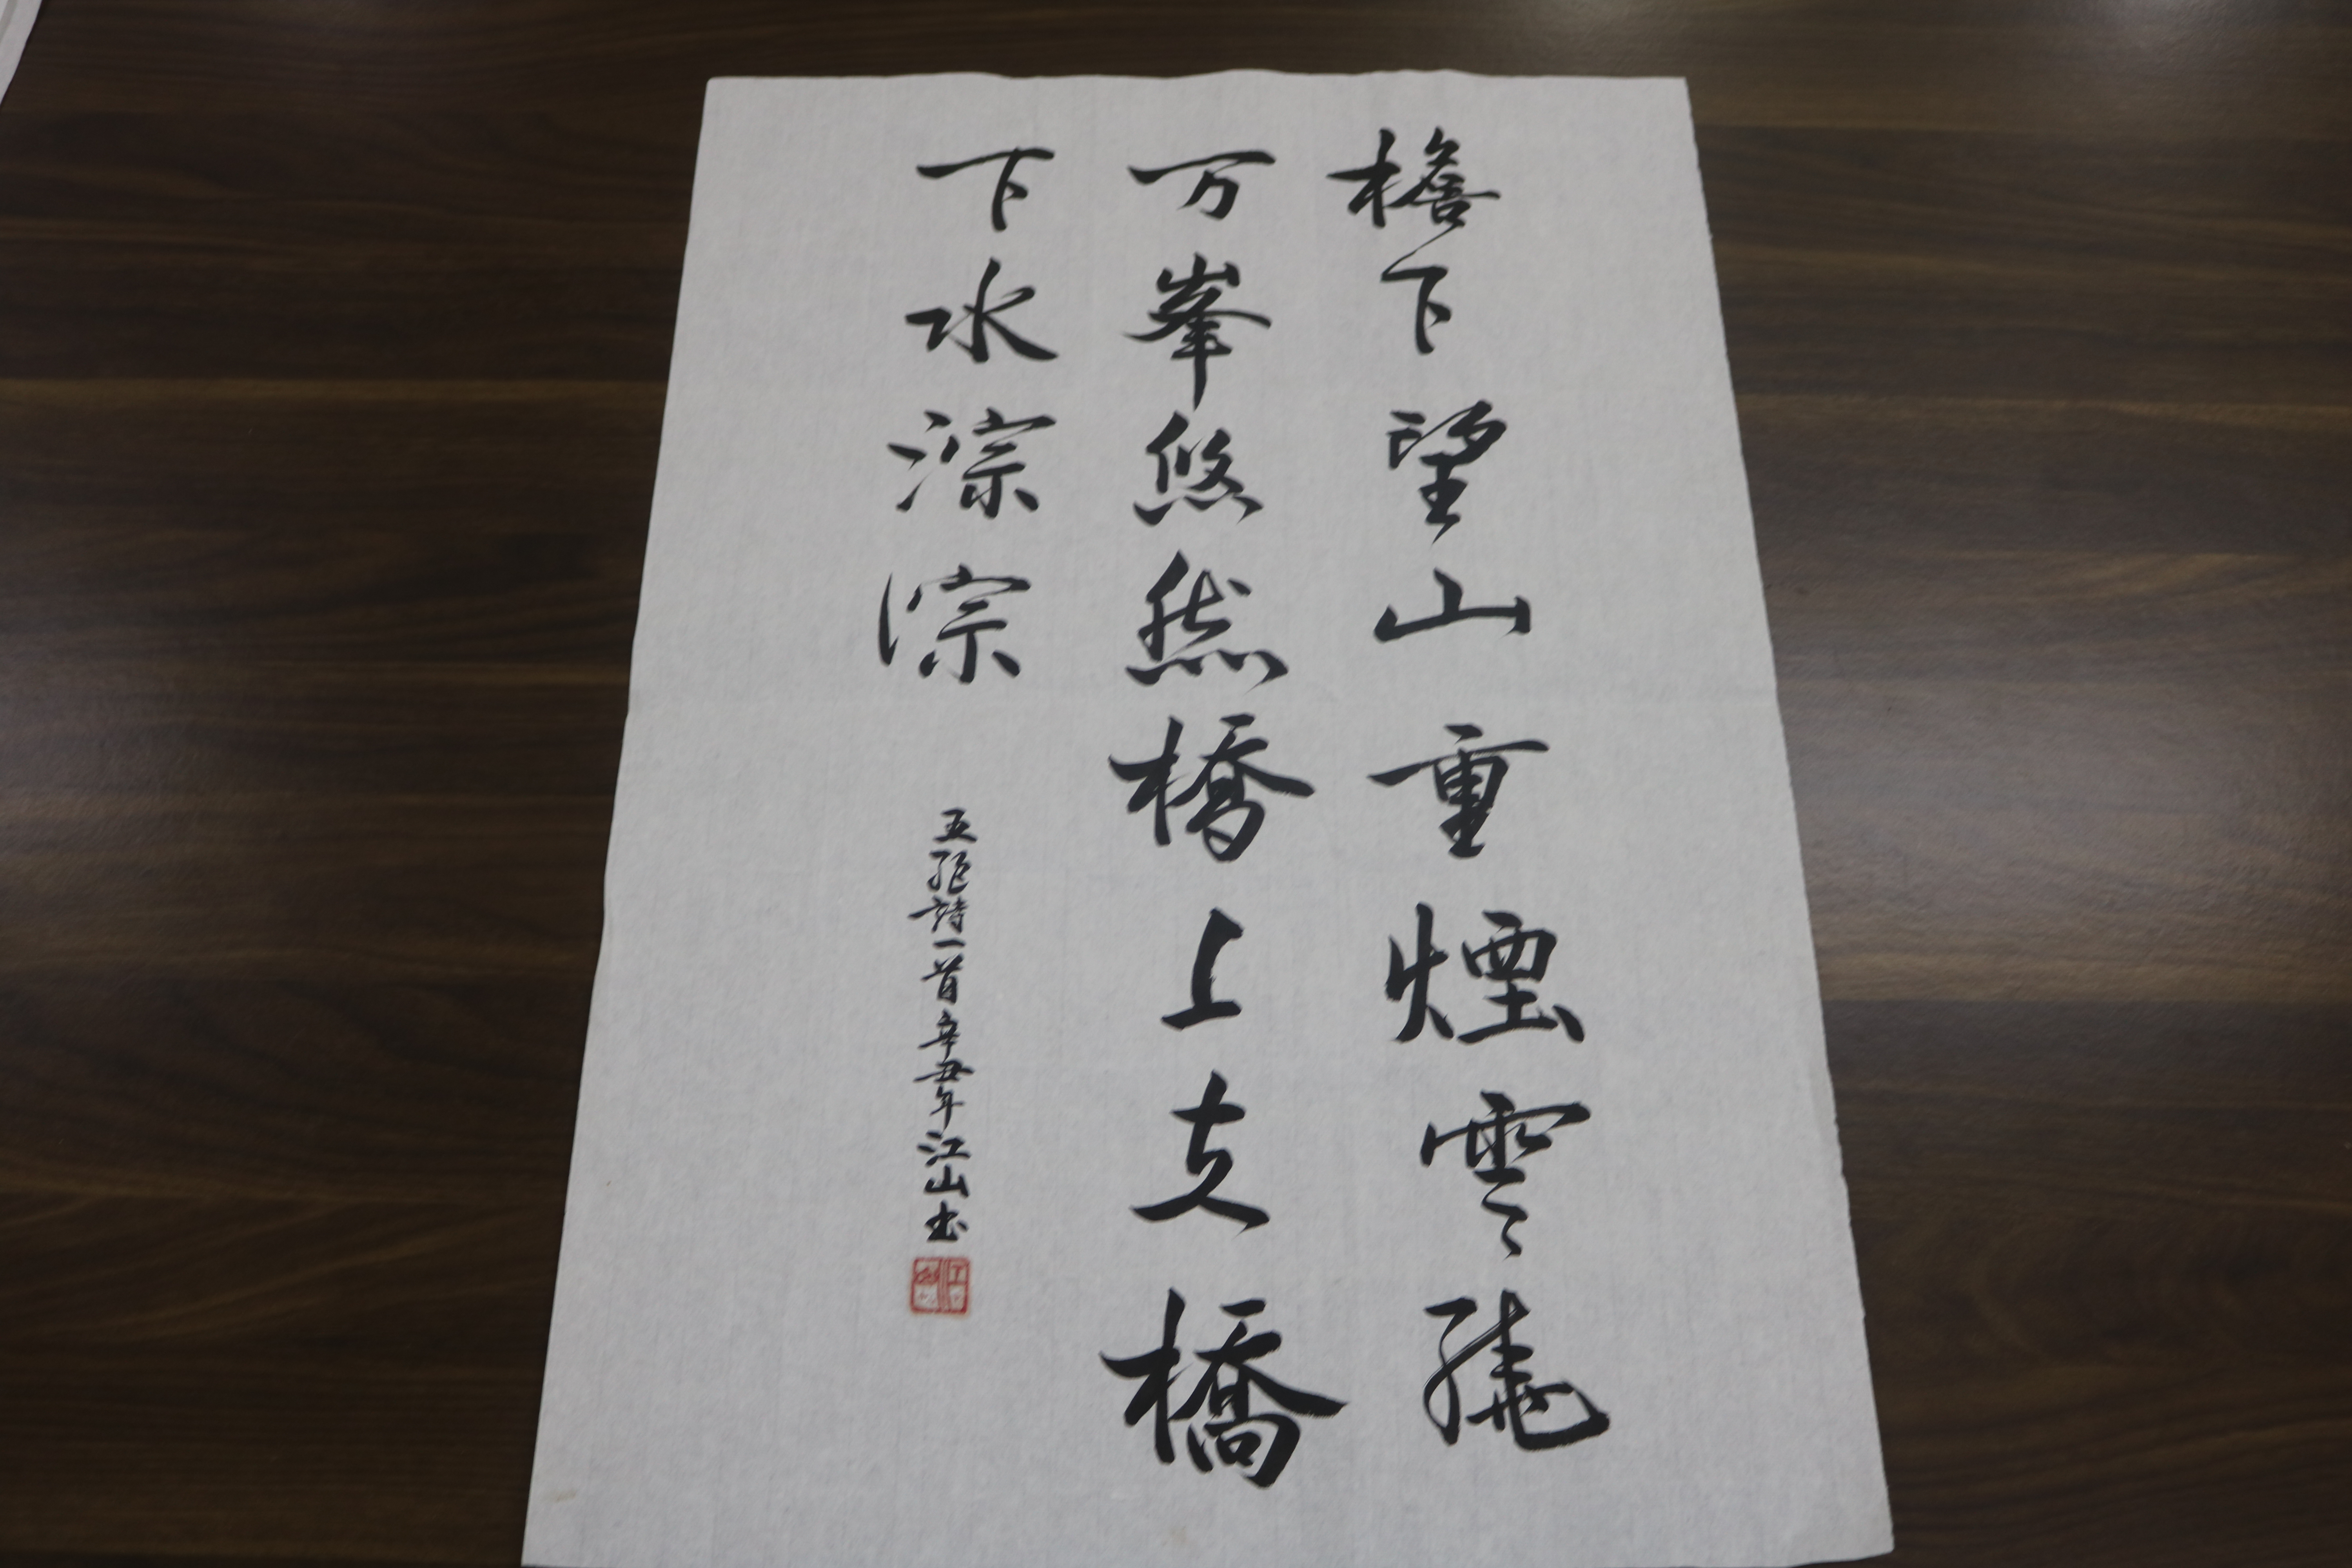 檐下望山重煙雲繞
万峯悠然橋上立橋
下水淙淙
五絕詩一首辛丑年江山书